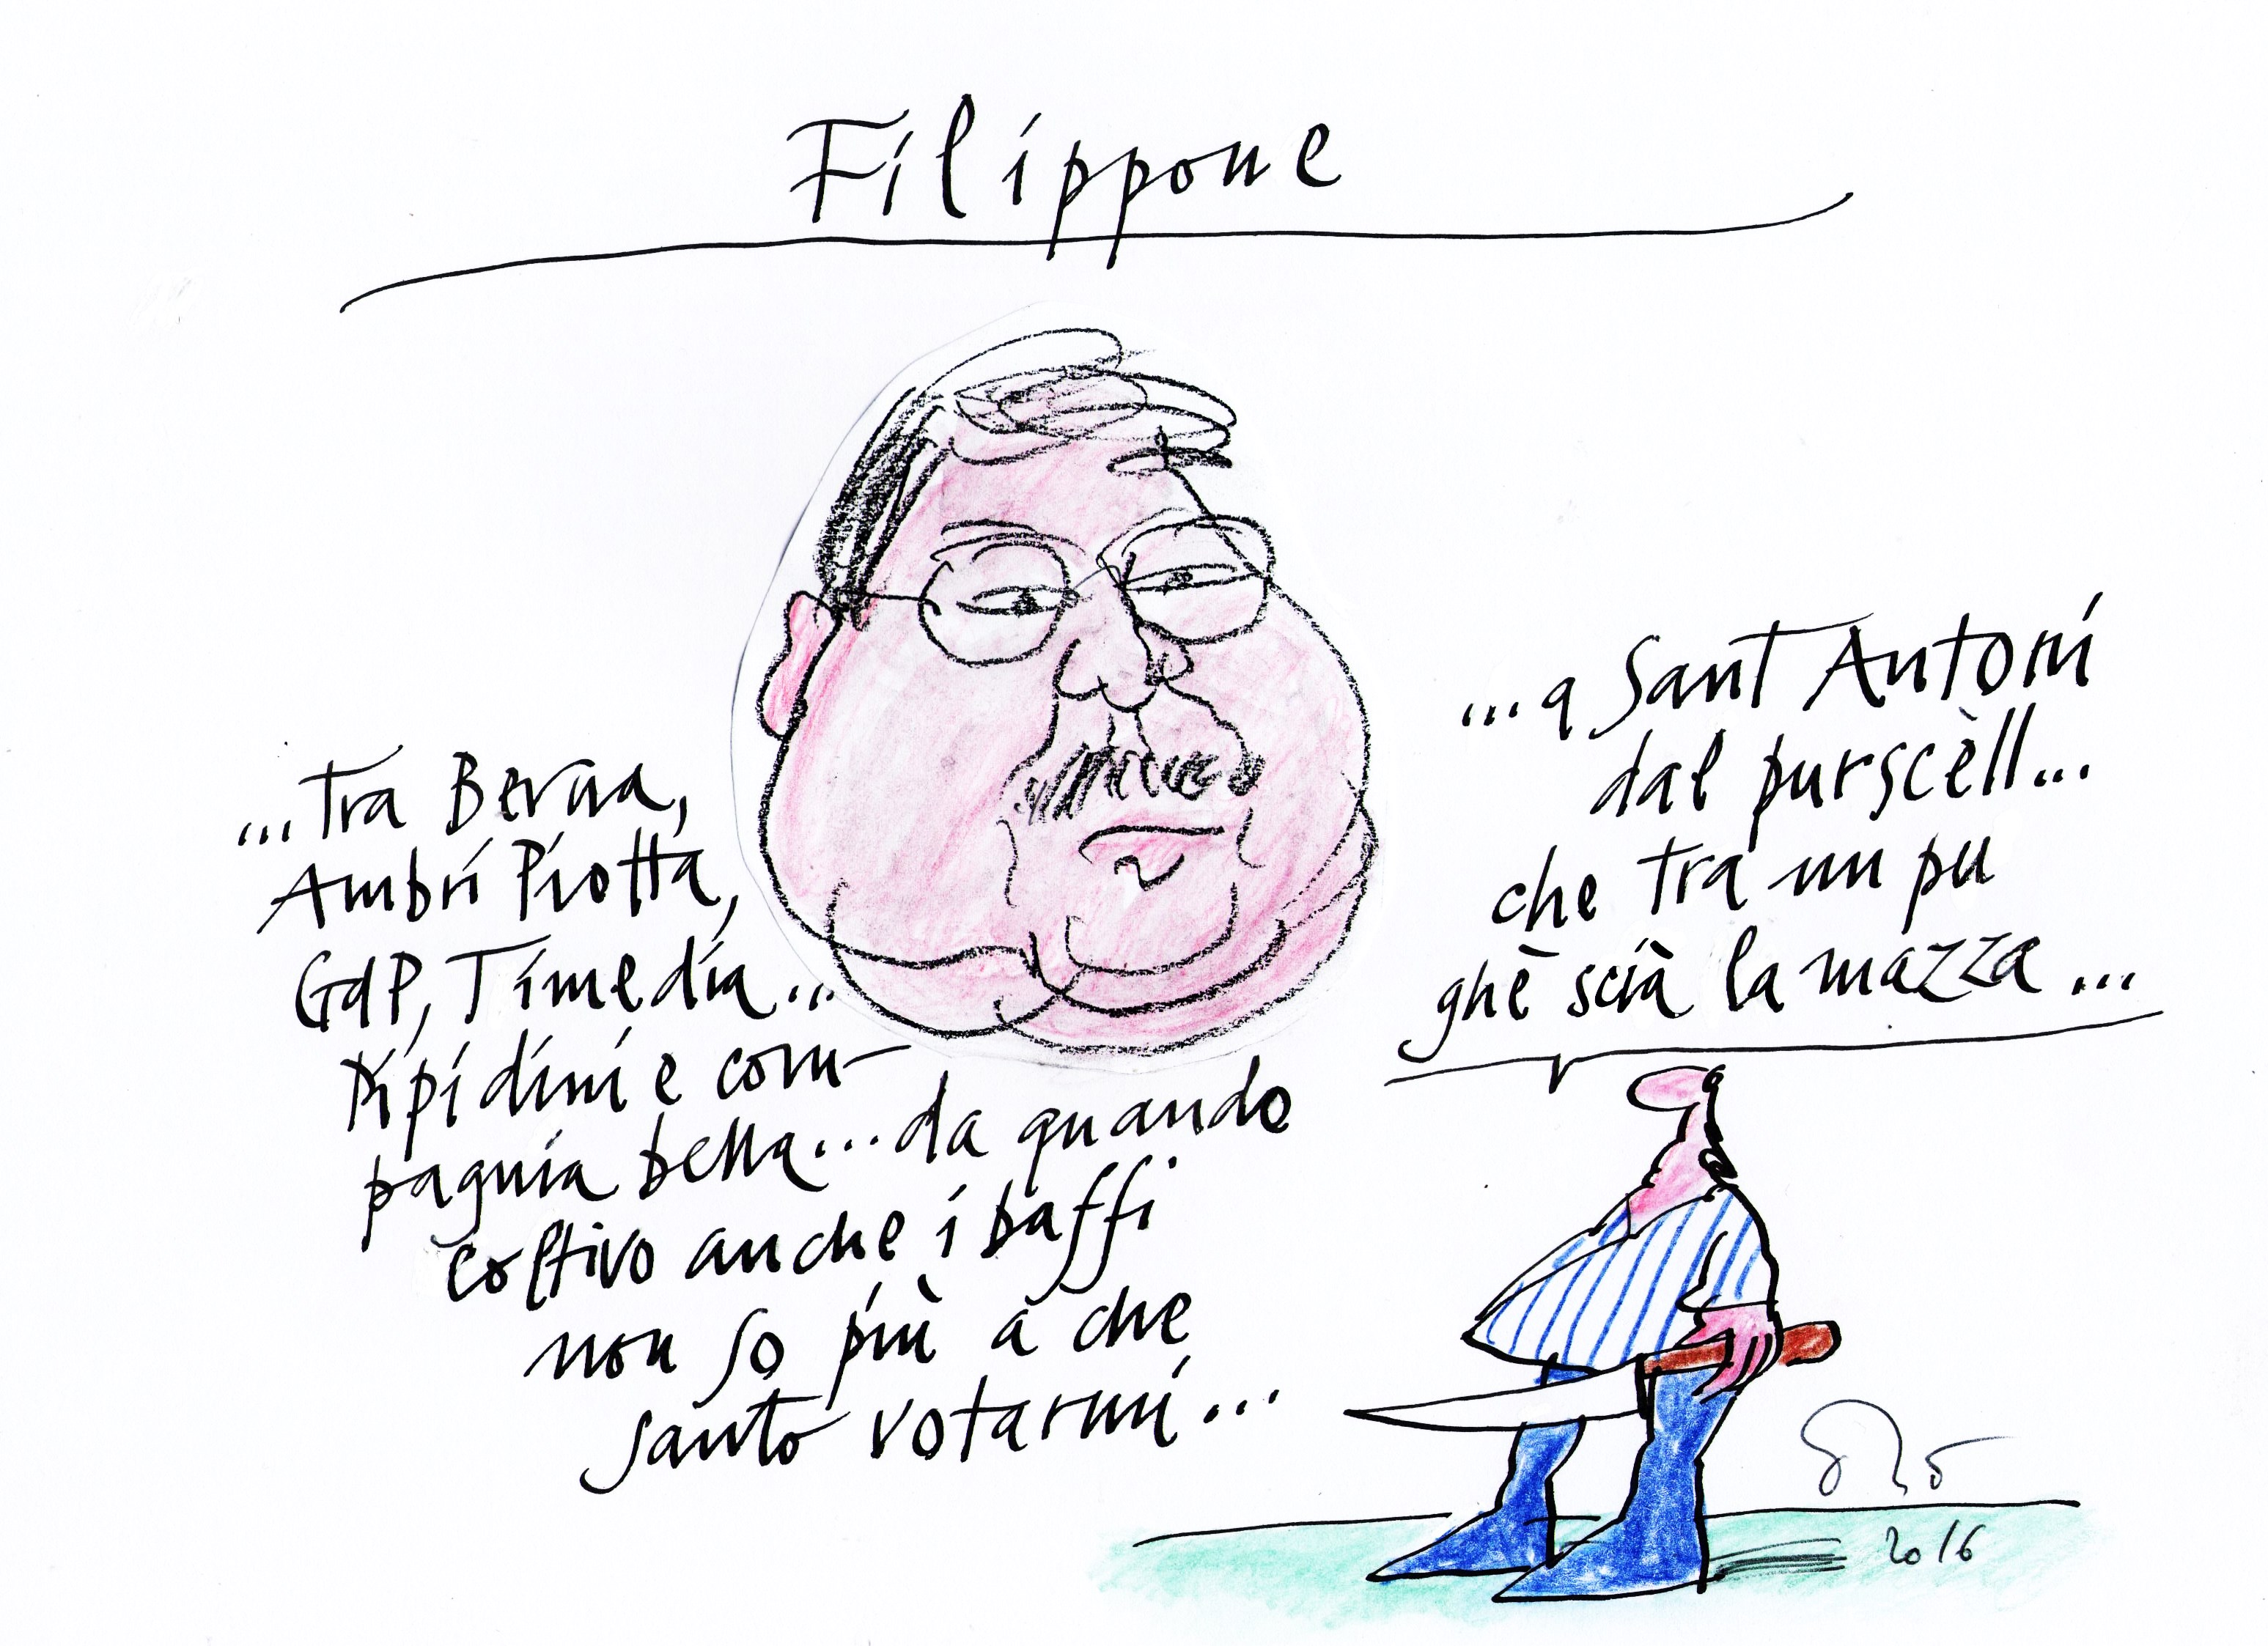 Filippone
...tra Berna,
Ambrì Piotta,
GdP, Timedia...
Pipidini e com-
pagnia bella... da quando
coltivo anche i baffi
non so più a che
santo votarmi...
...a Sant Antoni
dal purscèll...
che tra un pu
ghè scià la mazza...
2016